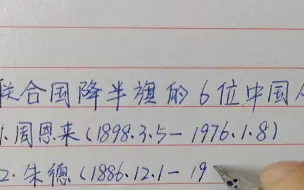 联合国降半旗的6位中国人
1.周恩来(1898.3.5-1976.1.8)
2.朱德(1886.12.1-19